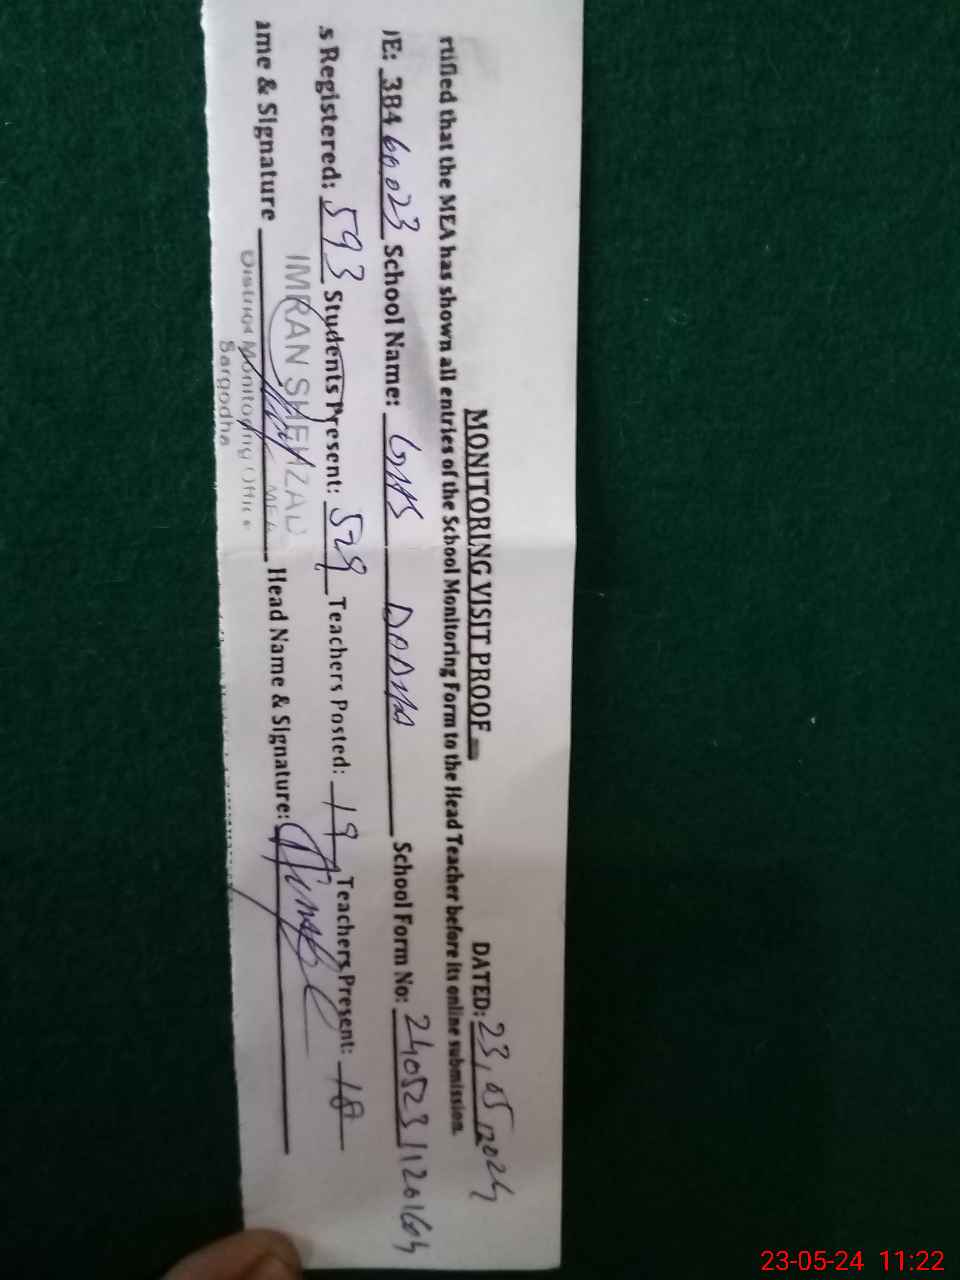 MONITORING VISIT PROOF
DATED: 23,05,2024
rtified that the MEA has shown all entries of the School Monitoring Form to the Head Teacher before its online submission.
DE: 38460023 School Name: GHS DODHA School Form No:
s Registered: 593 Students Present: 529 Teachers Posted: 19 Teachers Present: 18
ame & Signature Head Name & Signature:
IMRAN SHEHZAD
MEA
District Monitoring Office
Sargodha
23-05-24 11:22